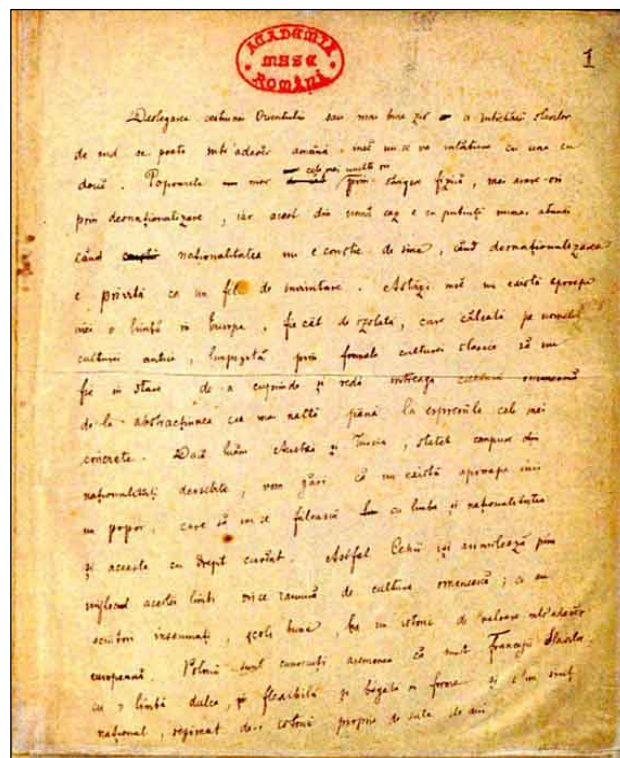 ACADEMIA
MSSE
ROMÂNĂ
1
Deslegarea cestiunei Orientului sau mai bine zis a slavilor
de sud se poate într'adevăr amâna, însă nu se va înlătura cu una cu
două. Popoarele mor cele mai multe ori prin stângere fizică, mai arare-ori
prin desnaționalizare, iar acest din urmă caz e cu putință numai atunci
când naționalitatea nu e conștie de sine, când desnaționalizarea
e privită ca un fel de înaintare. Astăzi însă nu există aproape
nici o limbă în Europa, fie cât de izolată, care călcată pe urmele
culturei antice, limpezită prin formele culturei clasice să nu
fie în stare de a cuprinde și reda întreaga cultură omenească
de la abstracțiunea cea mai naltă până la espresiile cele mai
concrete. Dacă luăm Austria și Turcia, statele compuse din
naționalități deosebite, vom găsi că nu există aproape nici
un popor, care să nu se fălească cu limba și naționalitatea
și aceasta cu drept cuvânt. Astfel Cehii își asimilează prin
mijlocul acestei limbi orice ramură de cultură omenească; ei au
scriitori însemnați, școli bune, au un istoric de valoare într'adevăr
europeană. Polonii sunt cunoscuți asemenea că sunt Francejii Slavilor
cu o limbă dulce, și flexibilă și bogată în forme și c'un simț
național, resignat de o istorie proprie de sute de ani